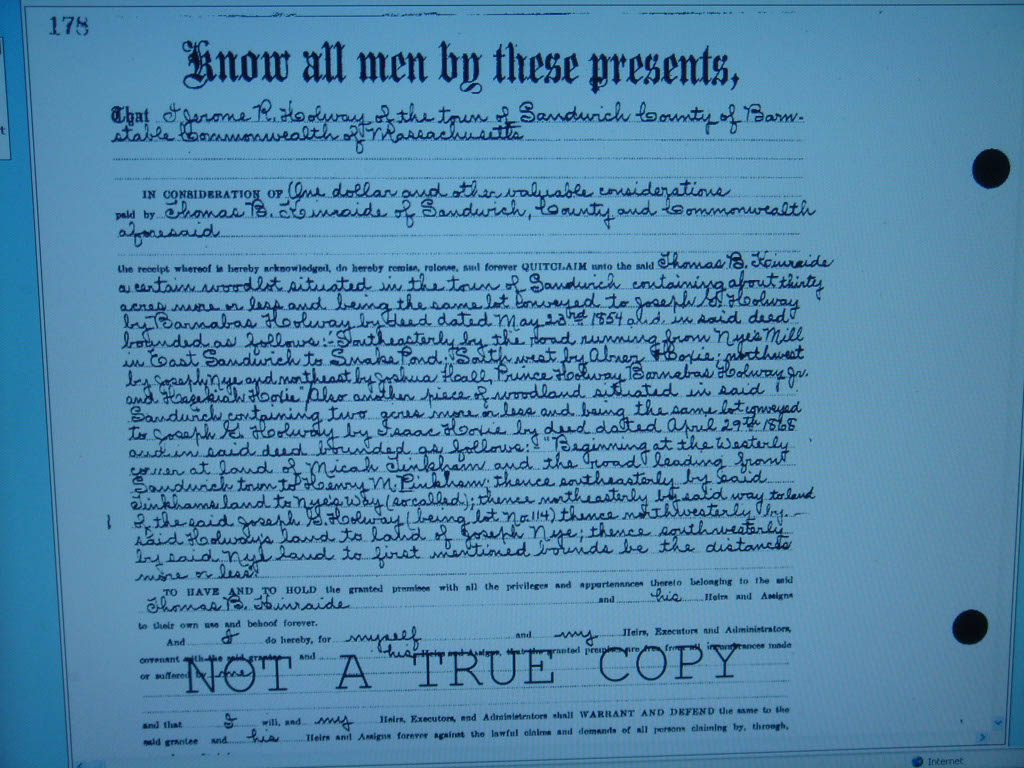 178
Know all men by these presents,
That I Jerome R. Holway of the town of Sandwich County of Barn-
stable Commonwealth of Massachusetts
IN CONSIDERATION OF One dollar and other valuable considerations
paid by Thomas B. Kinraide of Sandwich, County and Commonwealth
aforesaid
the receipt whereof is hereby acknowledged, do hereby remise, release, and forever QUITCLAIM unto the said Thomas B. Kinraide
a certain woodlot situated in the town of Sandwich containing about thirty
acres more or less and being the same lot conveyed to Joseph G. Holway
by Barnabas Holway by deed dated May 23rd 1854 and in said deed
bounded as follows:- "Southeasterly by the road running from Nye's Mill
in East Sandwich to Snake Pond; South west by Abner Hoxie; northwest
by Joseph Nye and northeast by Joshua Hall Prince Holway Barnabas Holway Jr.
and Hezekiah Hoxie" Also another piece of woodland situated in said
Sandwich containing two acres more or less and being the same lot conveyed
to Joseph G. Holway by Isaac Hoxie by deed dated April 29th 1868
and in said deed bounded as follows:- "Beginning at the Westerly
corner at land of Micah Tinkham and the road leading from
Sandwich town to Henry M. Tinkham; thence southeasterly by said
Tinkhams land to Nye's Way (so called); thence northeasterly by said way to land
of the said Joseph G. Holway (being lot No. 114) thence northwesterly by
said Holway's land to land of Joseph Nye; thence southwesterly
by said Nye land to first mentioned bounds be the distances
more or less."
TO HAVE AND TO HOLD the granted premises with all the privileges and appurtenances thereto belonging to the said
Thomas B. Kinraide and his Heirs and Assigns
to their own use and behoof forever.
And I do hereby, for myself and my Heirs, Executors and Administrators,
covenant with the said grantee and his Heirs and Assigns, that the granted premises are free from all incumbrances made
or suffered by me
NOT A TRUE COPY
and that I will, and my Heirs, Executors, and Administrators shall WARRANT AND DEFEND the same to the
said grantee and his Heirs and Assigns forever against the lawful claims and demands of all persons claiming by, through,
Internet